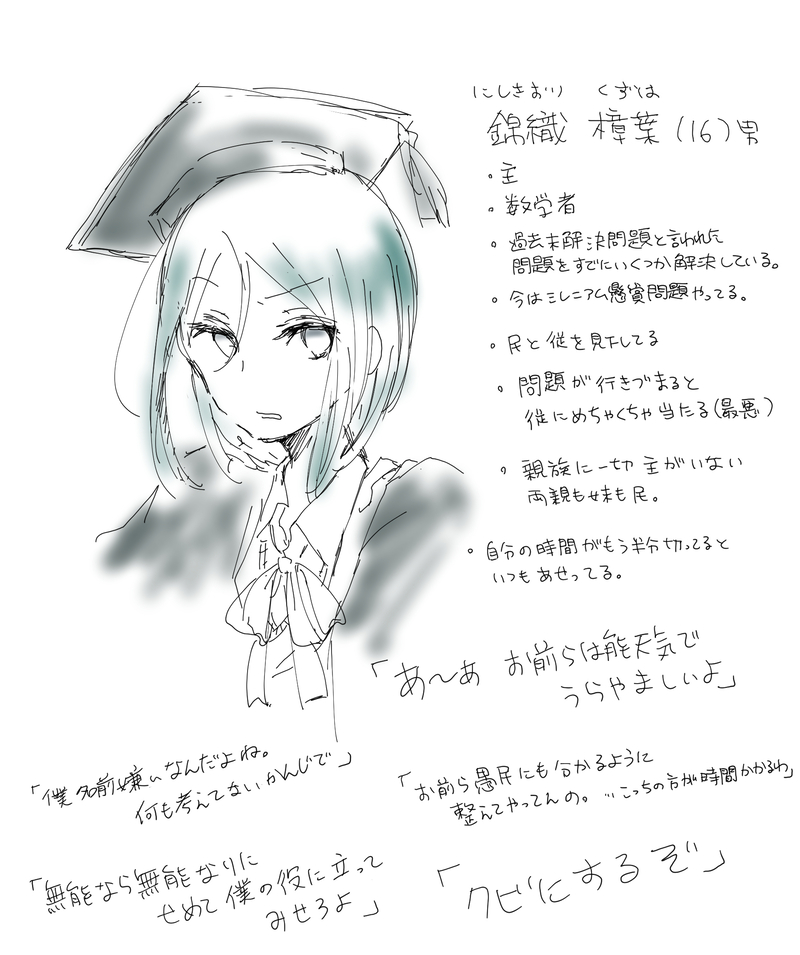 にしきおり くずは
錦織 樟葉 (16) 男
。主
。数学者
。過去未解決問題と言われた
問題をすでにいくつか解決している。
。今はミレニアム懸賞問題やってる。
。民と従を見下してる
。問題が行きづまると
従にめちゃくちゃ当たる(最悪)
。親族に一切主がいない
両親も妹も民。
。自分の時間がもう半分切ってると
いつもあせってる。
「あ〜あ お前らは能天気で
うらやましいよ」
「僕 お前嫌いなんだよね。
何も考えてないかんじで」
「お前ら愚民にも分かるように
整えてやってんの。…こっちの方が時間かかるわ」
「無能なら無能なりに
せめて僕の役に立って
みせろよ」
「クビにするぞ」